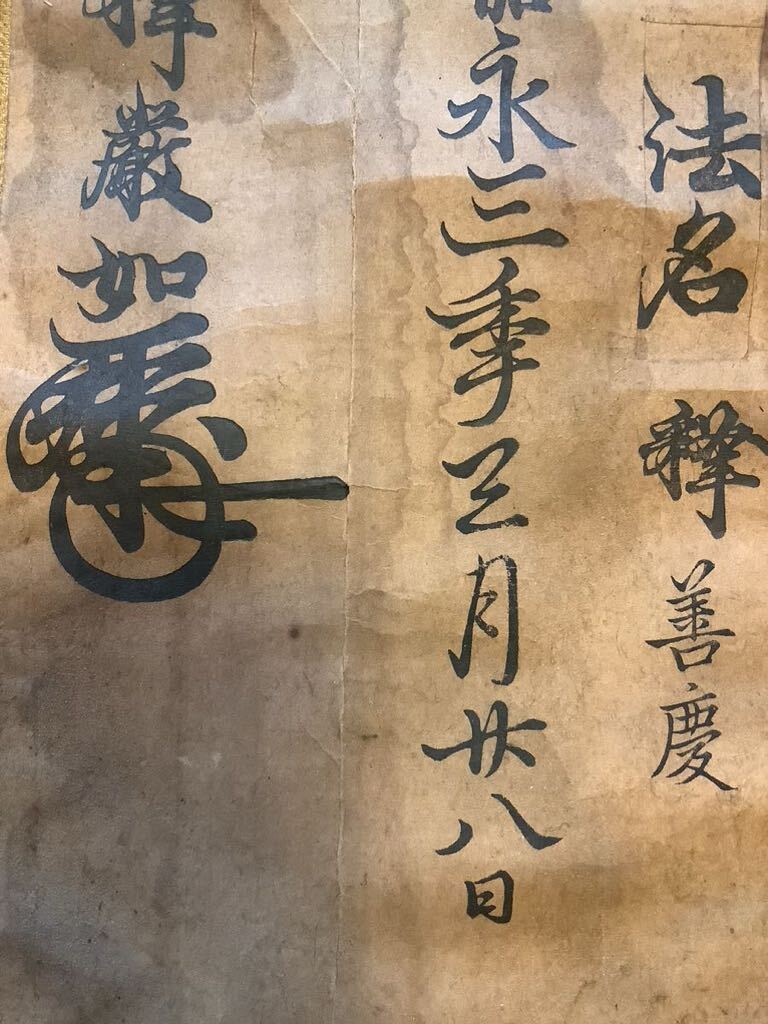 法名 釋善慶
嘉永三季三月廿八日
釋嚴如